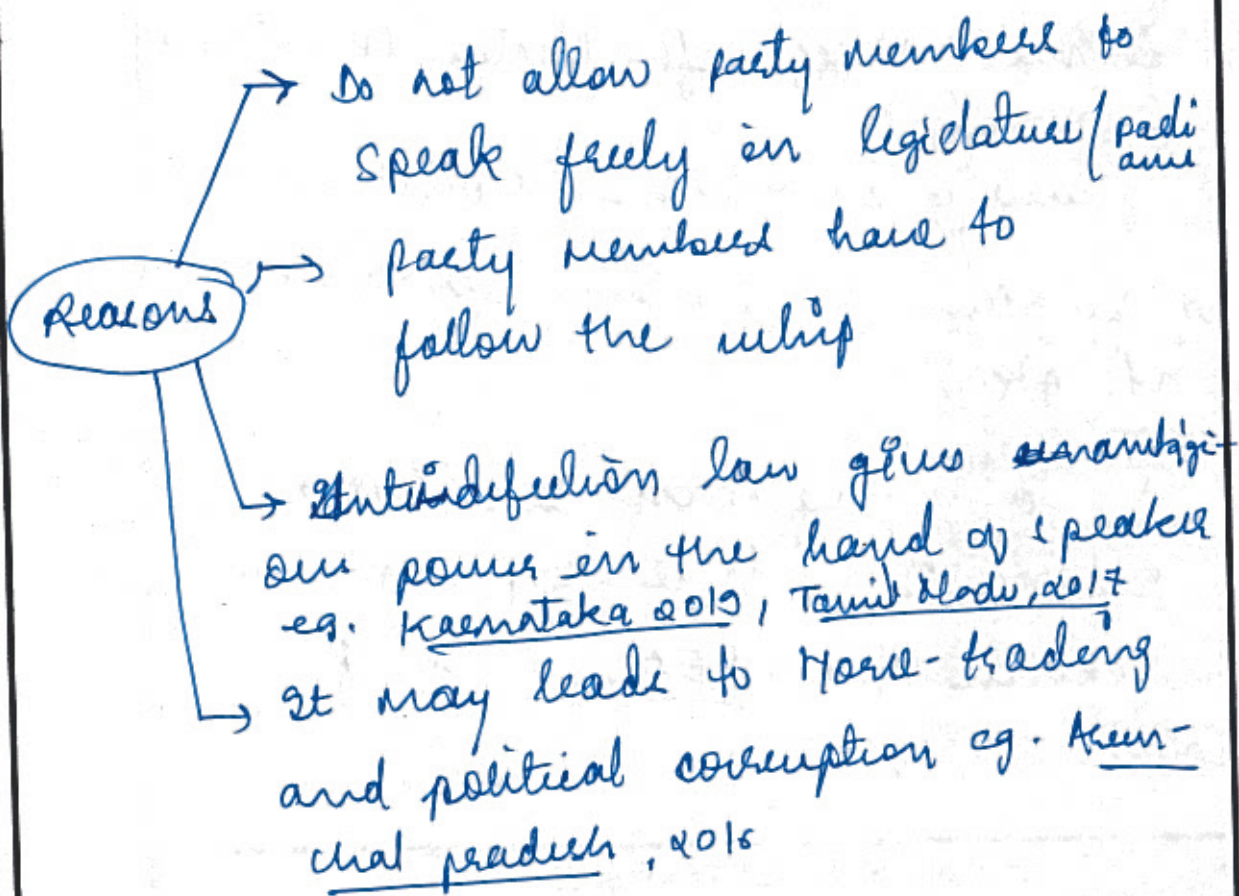 Reasons
→ Do not allow party members to
speak freely in legislature/
→ party members have to
follow the whip
→ Antidefection law gives
power in the hand of speaker
eg. Karnataka 2019, Tamil Nadu, 2017
→ It may leads to Horse-trading
and political corruption eg. Arun-
chal pradesh, 2016